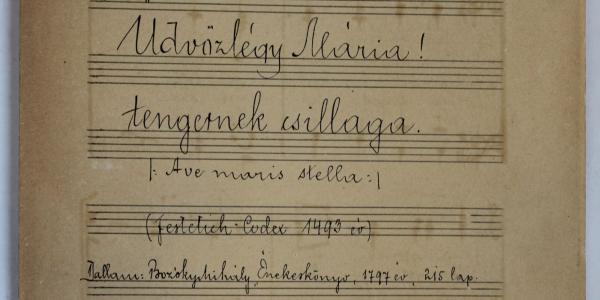 Udvözlégy Mária!
tengernek csillaga.
|: Ave maris stella :|
(Festetich-Codex 1493 év)
Dallam: Bozóky Mihály, Énekeskönyv, 1797 év, 215 lap.